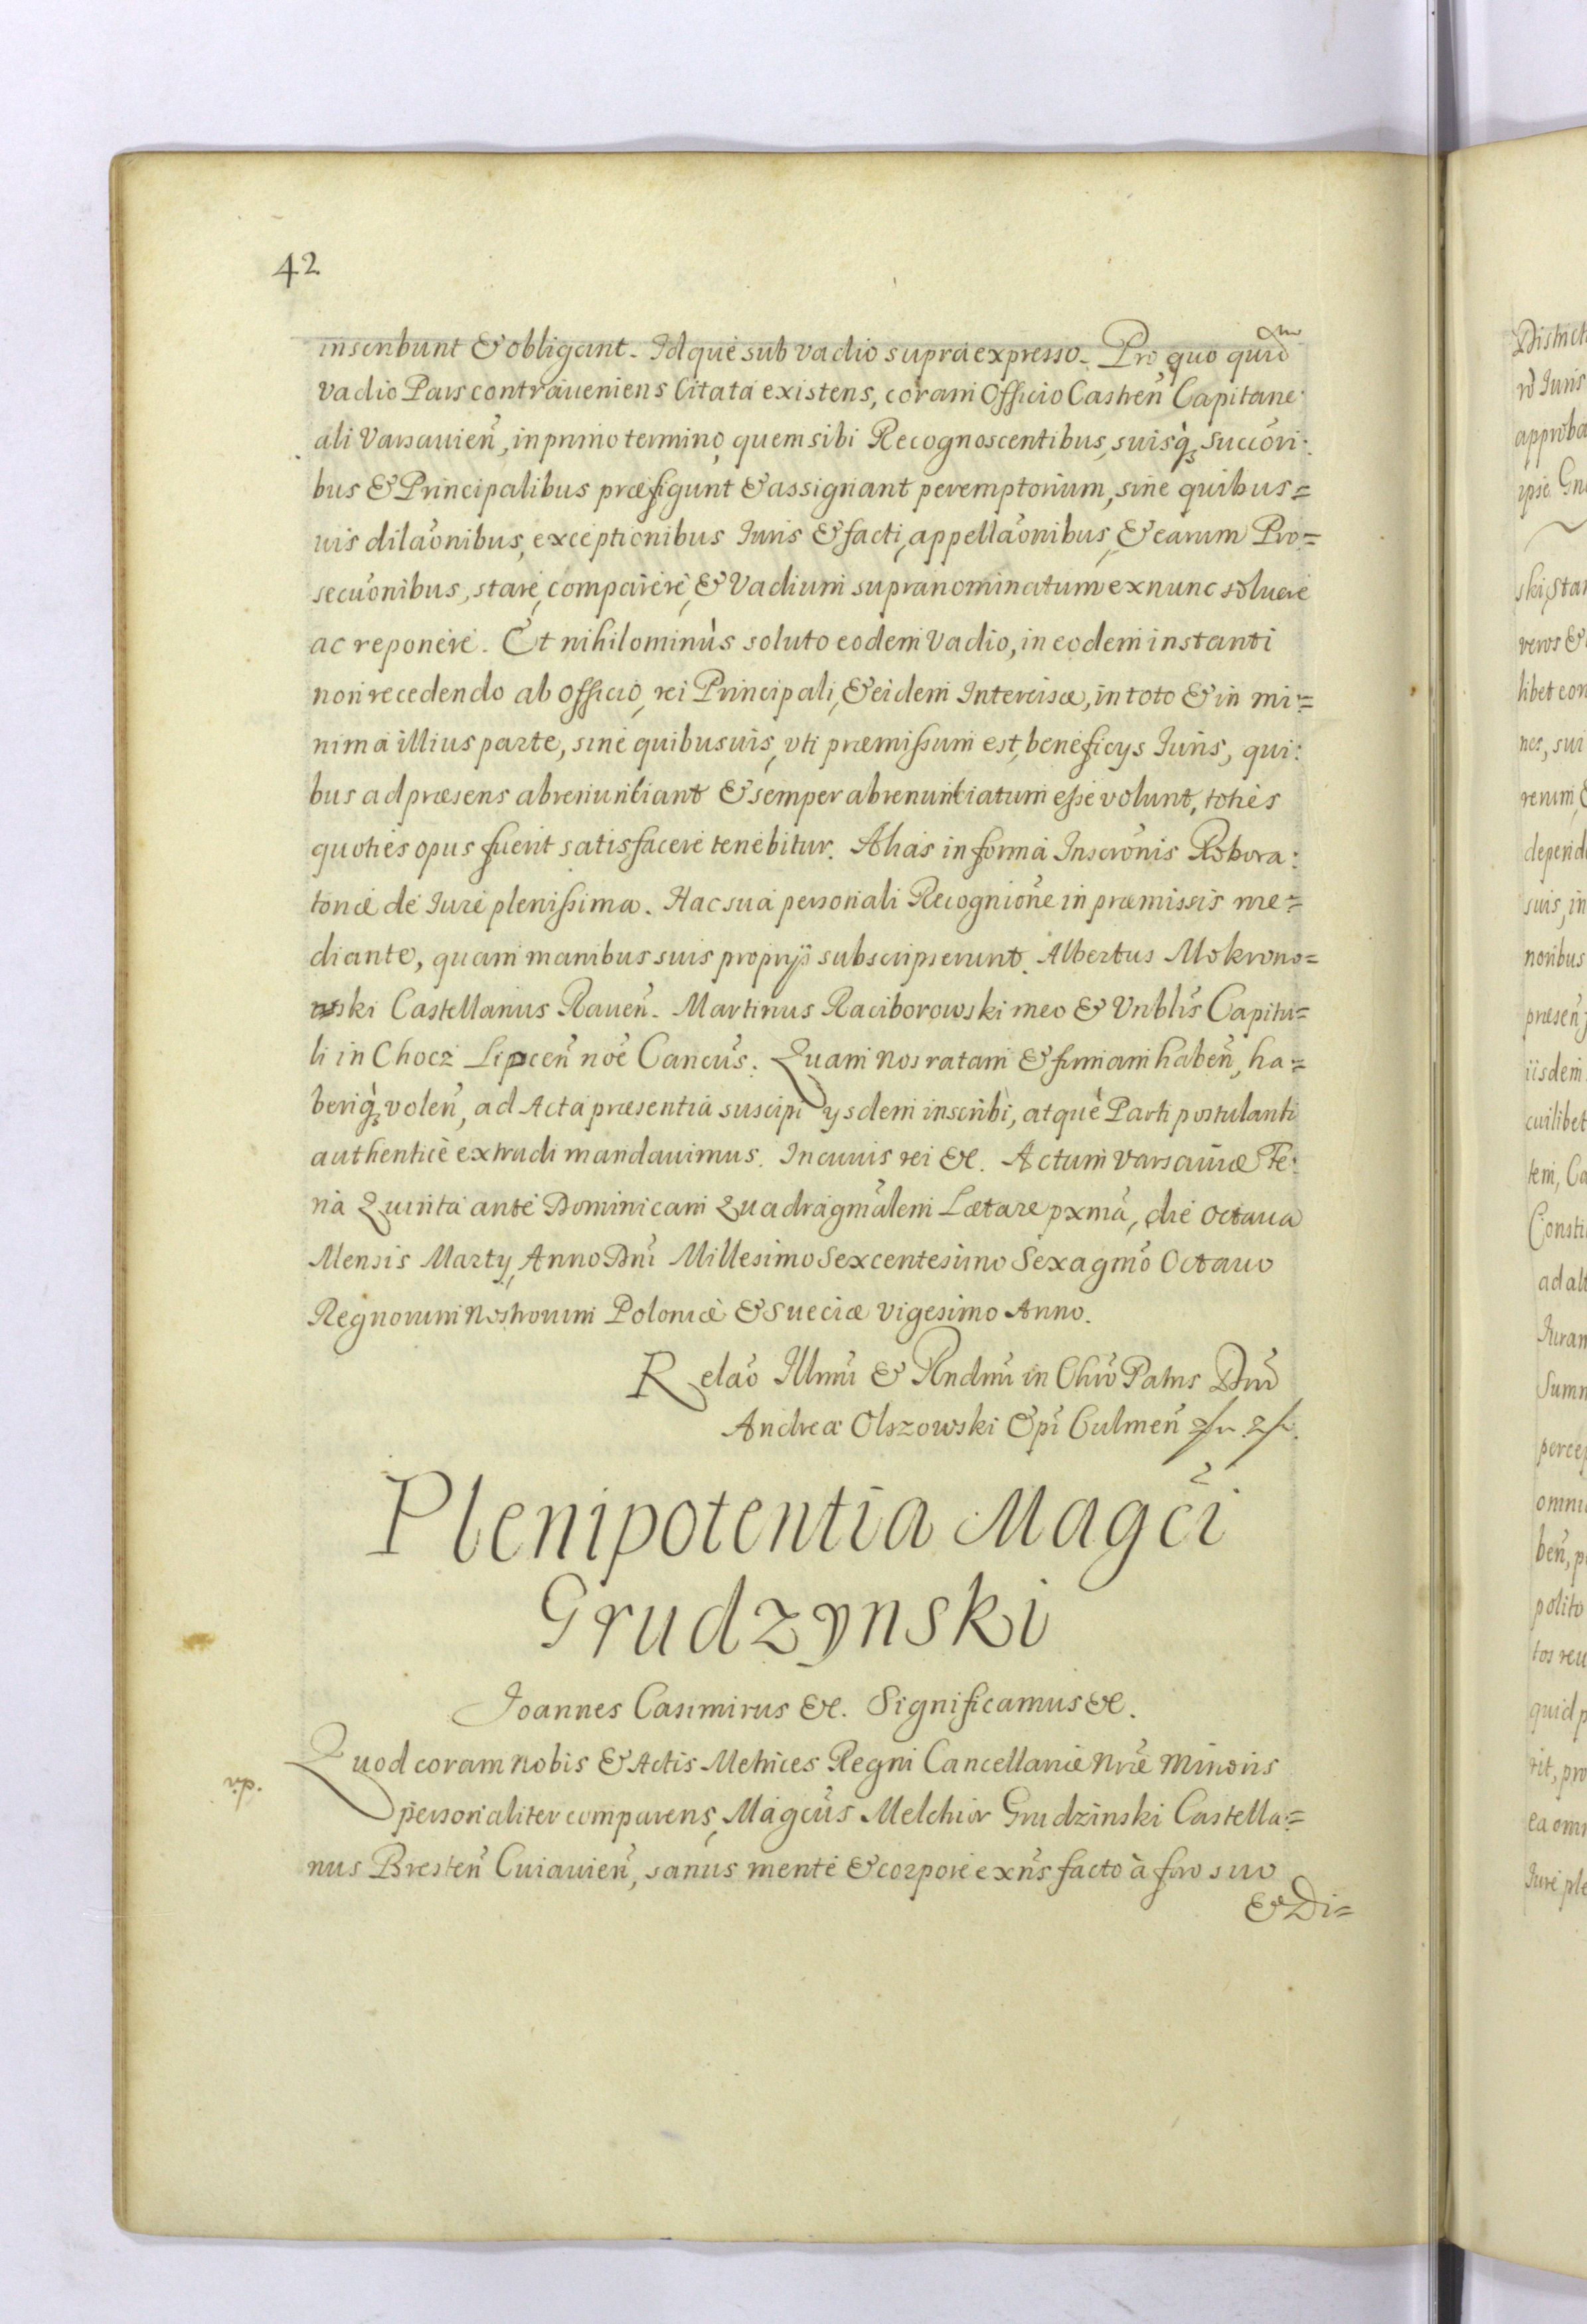 42
inscribunt & obligant. Idque sub vadio supra expresso. Pro quo quid͠m
vadio Pars contraueniens Citata existens, coram Officio Castren̄ Capitane:
ali Varsauien̄, in primo termino, quem sibi Recognoscentibus, suisq̀, Succōri:
bus & Principalibus præfigunt & assignant peremptorium, sine quibus=
uis dilāonibus, exceptionibus Iuris & facti, appellāonibus, & earum Pro=
secūonibus, stare, comparere, & Vadium supranominatum ex nunc soluere
ac reponere. Et nihilominùs soluto eodem Vadio, in eodem instanti
non recedendo ab Officio, rei Principali, & eidem Intercisæ, in toto & in mi=
nima illius parte, sine quibusuis, vti præmissum est, beneficys Iuris, qui:
bus ad præsens abrenuntiant & semper abrenuntiatum esse volunt, toties
quoties opus fuerit satisfacere tenebitur. Alias in forma Inscrōnis Robora:
toriæ de Iure plenissima. Hac sua personali Recogniōne in præmissis me=
diante, quam manibus suis proprijs subscripserunt. Albertus Mokrono=
wski Castellanus Rauen̄. Martinus Raciborowski meo & Vnblis̄ Capitu=
li in Chocz Lipcen̄ noē Cancūs. Quam nos ratam & firmam haben̄, ha=
beriq̀, volen̄, ad Acta præsentia suscipi ysdem inscribi, atquè Parti postulanti
authenticè extradi mandauimus. In cuius rei &c. Actum Varsauiæ Fe:
ria Quinta ante Dominicam Quadragmālem Lætare pxmā, die Octaua
Mensis Marty, Anno Dnī Millesimo Sexcentesimo Sexagmō Octauo
Regnorum Nostrorum Poloniæ & Sueciæ Vigesimo Anno.
Relāo Illmī & Rndmī in Chrō Patris Dnī
Andreæ Olszowski Epī Culmen̄
Plenipotentia Magc̄i
Grudzynski
Joannes Casimirus &c. Significamus &c.
Quod coram nobis & Actis Metrices Regni Cancellariæ Nrǣ Minoris
personaliter comparens, Magcūs Melchior Grudzinski Castella=
nus Bresten̄ Cuiauien̄, sanus mente & corpore exn̄s facto à foro suo
& Di=